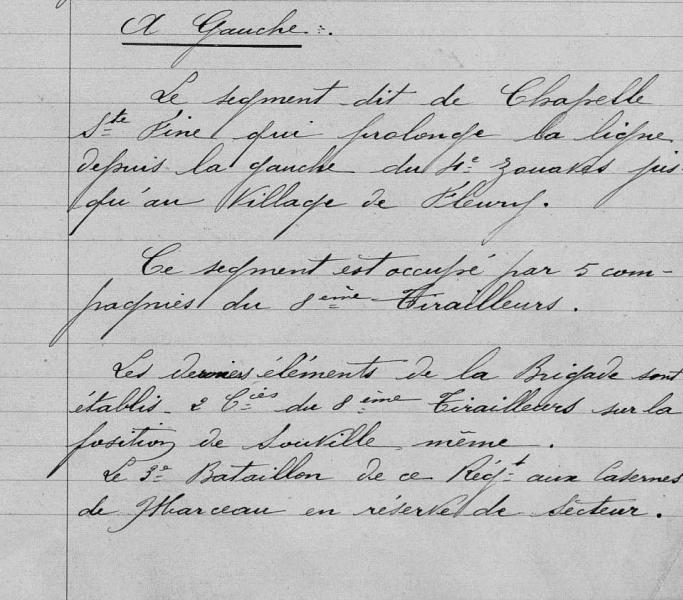 A Gauche :.
Le segment dit de Chapelle
Ste Fine qui prolonge la ligne
depuis la gauche du 4e Zouaves jus-
qu'au Village de Fleury.
Ce segment est occupé par 5 com-
pagnies du 8ème Tirailleurs.
Les derniers éléments de la Brigade sont
établis - 2 Cies du 8ème Tirailleurs sur la
position de Souville même.
Le 3e Bataillon de ce Régt aux Casernes
de Marceau en réserve de secteur.